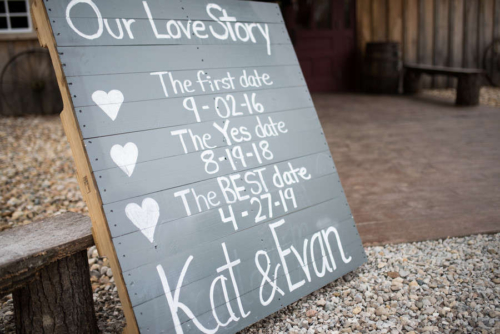 Our Love Story
The first date
9-02-16
The Yes date
8-19-18
The BEST date
4-27-19
Kat & Evan